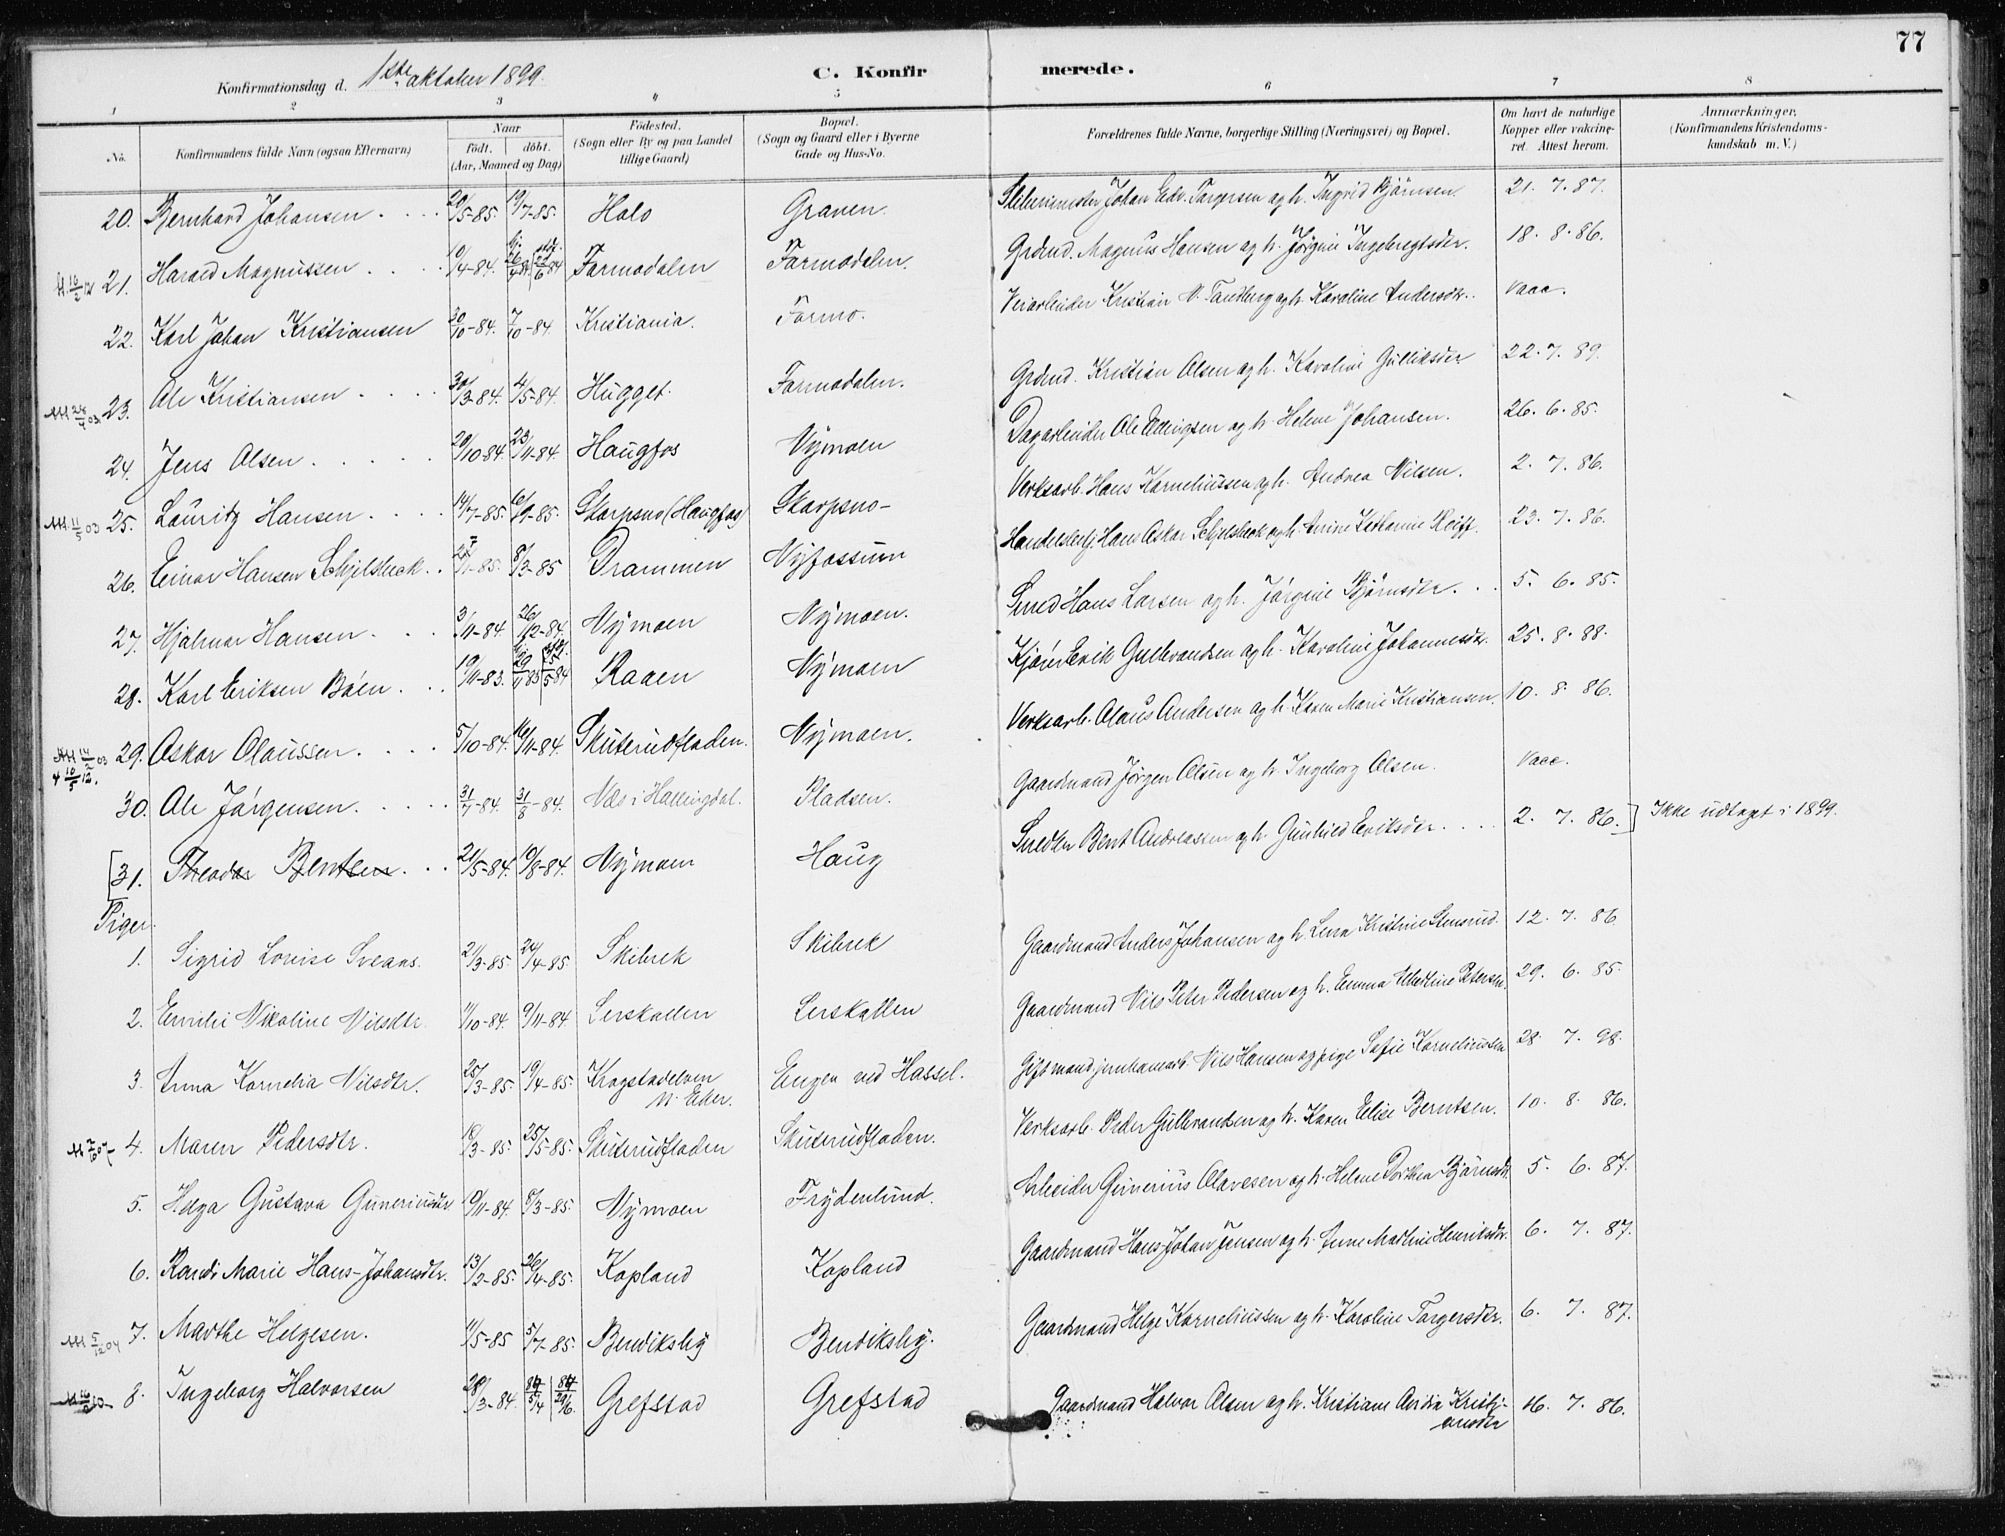 77
Konfirmationsdag d. 1ste oktober 1899.
C. Konfir merede.
1 2 3 4 5 6 7 8
No. Konfirmandens fulde Navn (ogsaa Efternavn) Naar Født. døbt. (Aar, Maaned og Dag) Fødested. (Sogn eller By og paa Landet tillige Gaard) Bopæl. (Sogn og Gaard eller i Byerne Gade og Hus-No. Forældrenes fulde Navne, borgerlige Stilling (Næringsvei) og Bopæl. Om havt de naturlige Kopper eller vakcineret. Attest herom. Anmærkninger. (Konfirmandens Kristendomskundskab m. V.)
20. Bernhard Johansen 20/5-85. 19/7-85. Holo Graven. Johan Edv. Torgersen og h. Ingrid Bjørnsen. 21. 7. 87.
21. Harald Magnussen 10/4-84. Formodalen Formodalen. Grdmd. Magnus Hansen og h. Jørgine Ingebregtsdtr. 18. 8. 86.
22. Karl Johan Kristiansen 20/10-84. 7/10-84 Kristiania. Formo. Veiarbeider Kristian N. Tandberg og h. Karoline Andersdtr. Vacc.
23. Ole Kristiansen 30/3-84. 4/5-84. Hugget. Formodalen. Grdmd. Kristian Olsen og h. Karoline Gulliksdtr 22. 7. 89.
24. Jens Olsen 20/10-84. 23/11-84. Haugfos Nymoen Dagarbeider Ole Ellingsen og h. Helene Johansen. 26. 6. 85.
25. Lauritz Hansen 14/7-85. 6/9-85. Skarpsno (Haugfos) Skarpsno- Verksarb. Hans Korneliussen og h. Andrea Nilsen. 2. 7. 86.
26. Einar Hansen Schjelsbek 8/3-85 Drammen Nyfossum Handelsbetj. Hans Oskar Schjelsbek og h. Anine Katharine Reiff. 23. 7. 86.
27. Hjalmar Hansen 3/11-84. 26/12-84. Nymoen Nymoen. Smed Hans Larsen og h. Jørgine Bjørnsdtr. 5. 6. 85.
28. Karl Eriksen Bøen 19/11-83. Raaen Nymoen Erik Gulbrandsen og h. Karoline Johannesdtr. 25. 8. 88.
29. Oskar Olaussen 5/10-84. 16/11-84. Skuterudfladen. Nymoen. Verksarb. Olaus Andersen og h. Karen Marie Kristiansen. 10. 8. 86.
30. Ole Jørgensen 31/7-84. 31/8-84. Næs i Hallingdal. Pladsen. Gaardmand Jørgen Olsen og h. Ingeborg Olsen. Vacc.
[31. Theodor Bentsen 21/5-84. 10/8-84. Nymoen Haug Bent Andreassen og h. Gunhild Eriksdtr. 2. 7. 86.] Ikke udtaget i 1899.
Piger.
1. Sigrid Lovise Sveaas. 21/3-85. 24/4-85. Skibrek Skibrek Gaardmand Anders Johansen og h. Lena Kristine Stensrud. 12. 7. 86
2. Emilie Nikoline Nilsdtr. 11/10-84. 9/11-84. Lerskallen Lerskallen Gaardmand Nils Peter Pedersen og h. Emma Petersen. 29. 6. 85.
3. Anna Kornelia Nilsdtr. 25/3-85. 19/4-85. Krogstadelven N. Eker. Engen ved Hassel. Gift mand Nils Hansen og pige Sofie Korneliussen 28. 7. 98.
4. Maren Pedersdtr. 25/5-85. Skuterudfladen Skuterudfladen. Verksarb. Peder Gulbrandsen og h. Karen Elise Berntsen. 10. 8. 86.
5. Helga Gustava Guneriusdtr. 10/11-84. 8/3-85. Nymoen Frydenlund. Arbeider Gunerius Olavesen og h. Helene Dorthea Bjørnsdtr. 5. 6. 87.
6. Randi Marie Hans-Johansdtr. 13/2-85. 26/4-85. Kopland Kopland Gaardmand Hans Johan Jensen og h. Anne Mathine Henriksdtr. 6. 7. 87.
7. Marthe Helgesen. 11/5-85 5/7-85. Bendiksby Bendiksby. Gaardmand Helge Korneliussen og h. Karoline Torgersdtr. 6. 7. 87.
8. Ingeborg Halvorsen 28/3-84. Grefstad Grefstad Gaardmand Halvor Olsen og h. Kristiane 16. 7. 86.